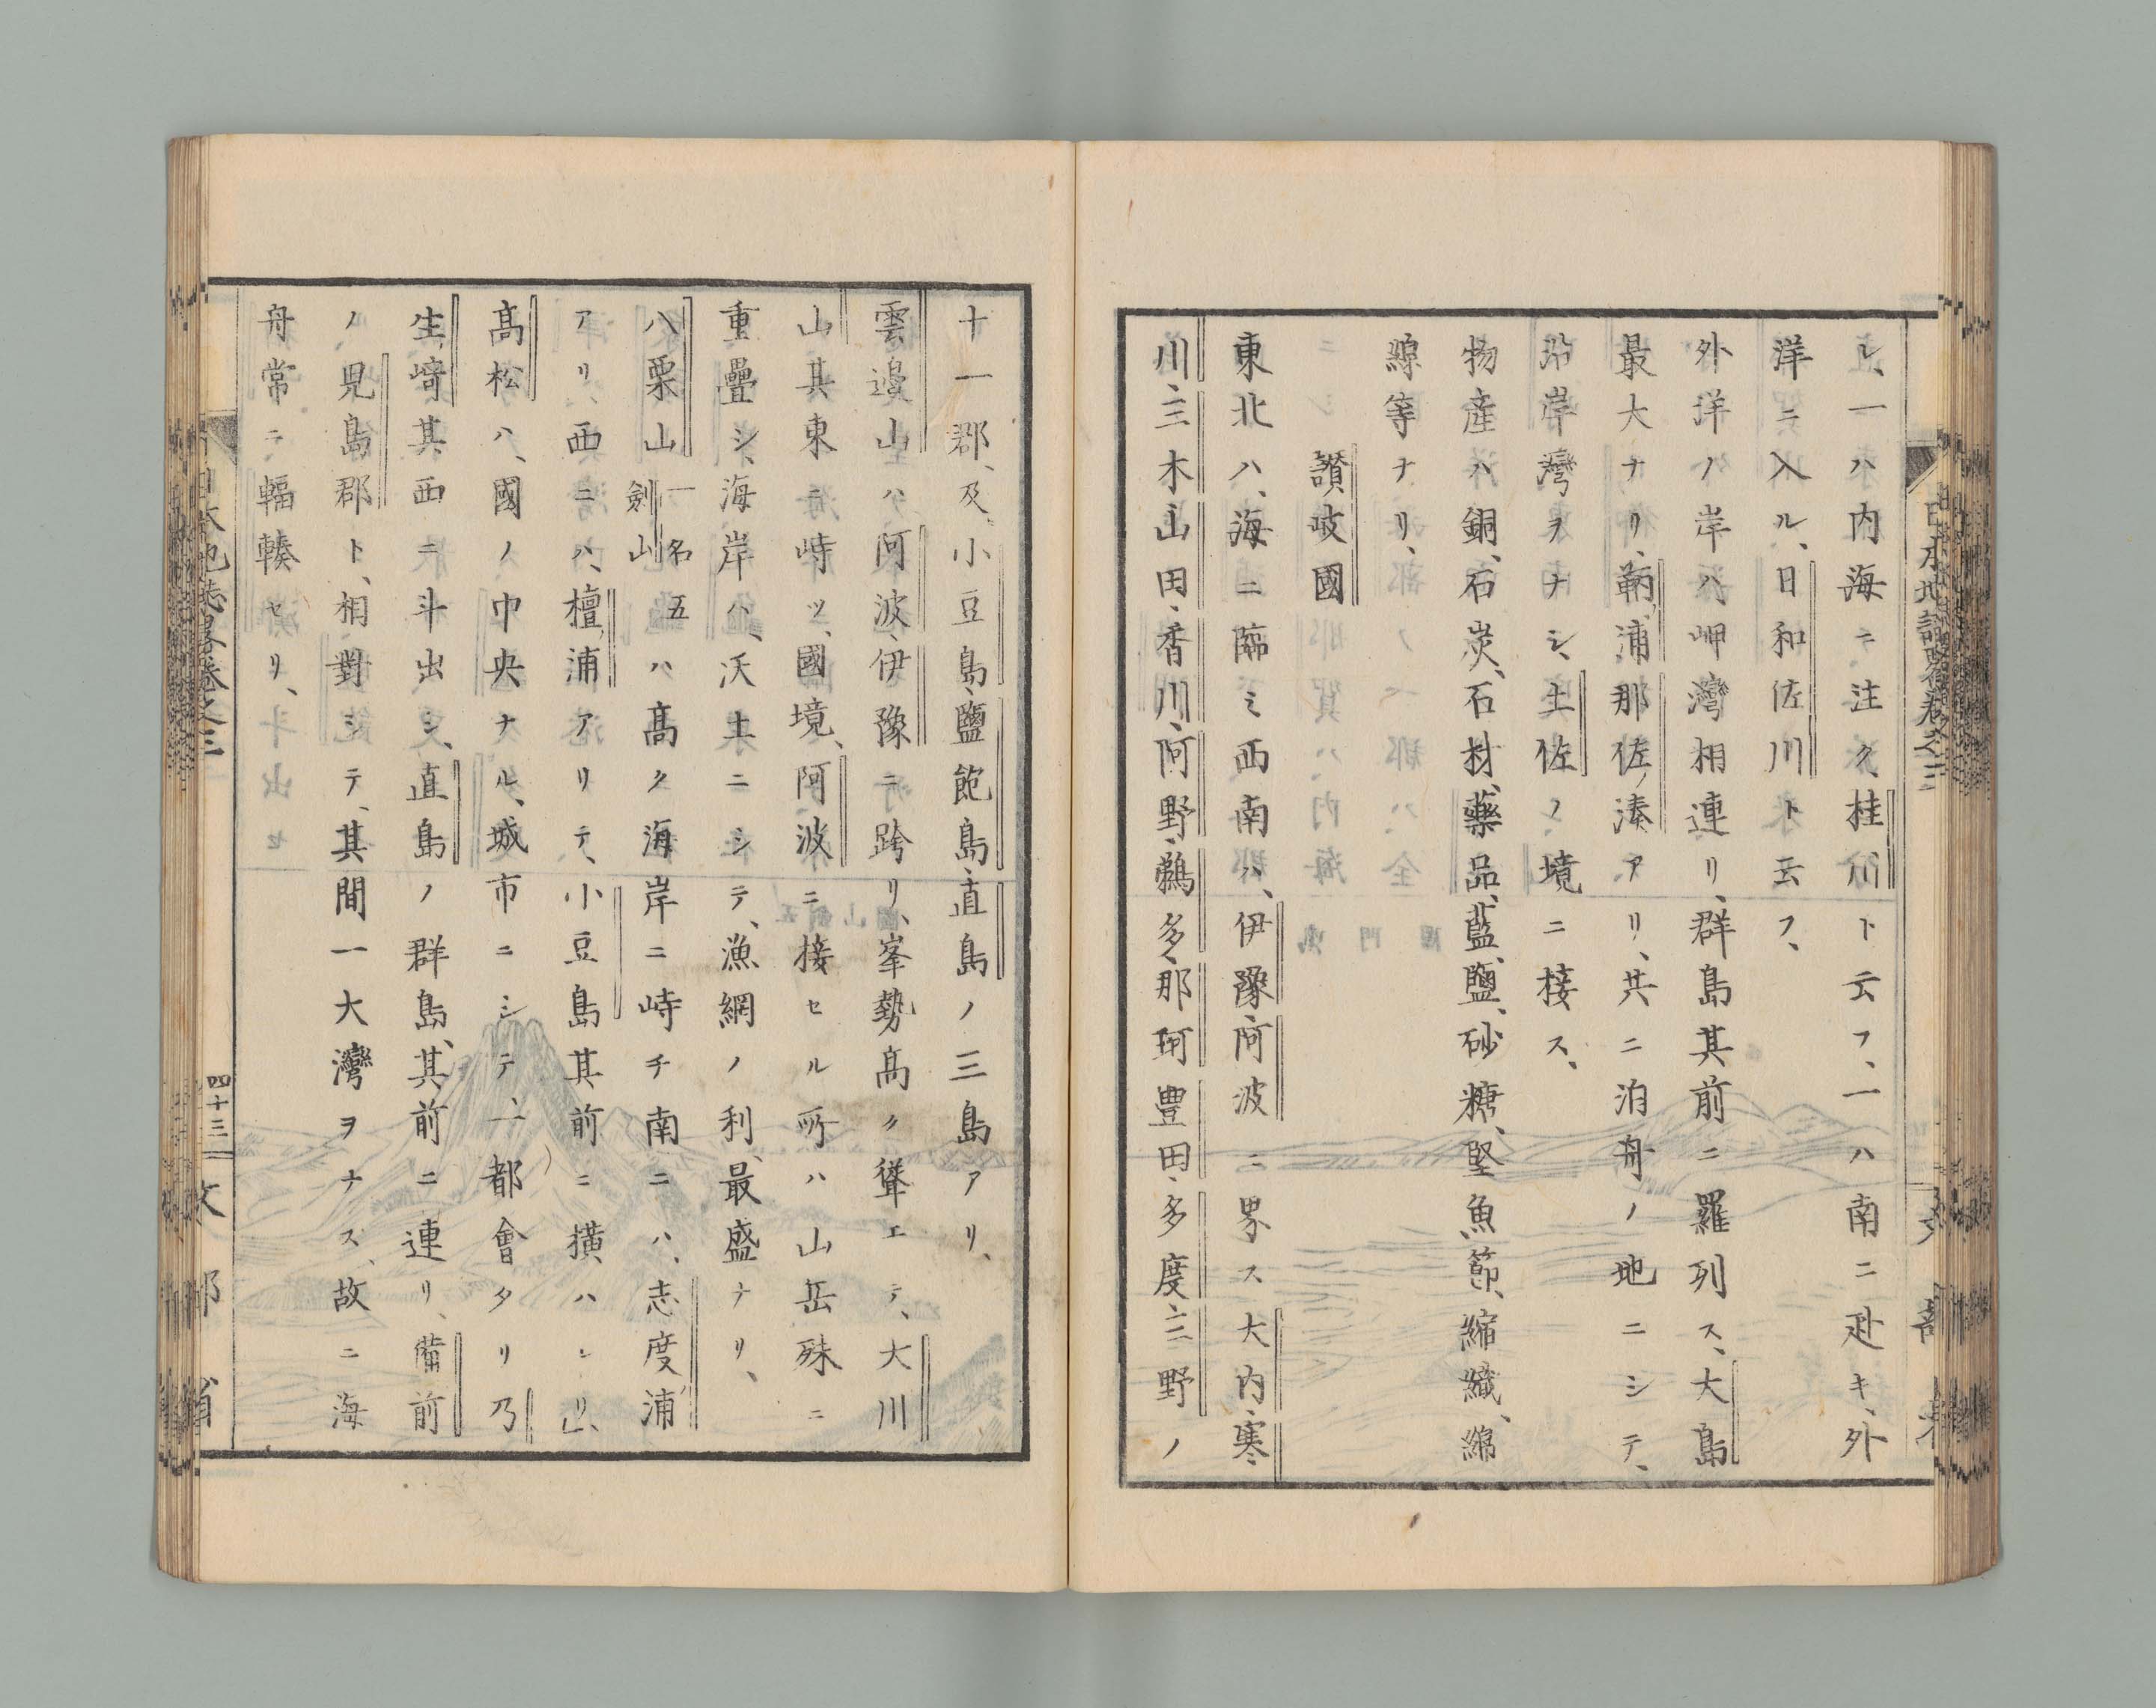 レ、一ハ内海ニ注ク、桂川ト云フ、一ハ南ニ赴キ、外
洋ニ入ル、日和佐川ト云フ、
外洋ノ岸ハ岬灣相連リ、群島其前ニ羅列ス、大島
最大ナリ、鞆ノ浦那佐ノ湊アリ、共ニ泊舟ノ地ニシテ、
沿岸灣ヲナシ、土佐ノ境ニ接ス、
物産ハ銅、石炭、石材、藥品、藍、鹽、砂糖、堅魚節、縮織、綿
線等ナリ、
讃岐國
東北ハ、海ニ臨ミ西南ハ、伊豫、阿波ニ界ス大内、寒
川、三木、山田、香川、阿野、鵜多、那珂豊田、多度、三野ノ
十一郡、及小豆島、鹽飽島、直島ノ三島アリ、
雲邊山ハ、阿波、伊豫ニ跨リ、峯勢高ク聳エテ、大川
山其東ニ峙ツ、國境、阿波ニ接セル所ハ山岳殊ニ
重疊シ、海岸ハ、沃土ニシテ、漁網ノ利最盛ナリ、
八栗山一名五劍山ハ高ク海岸ニ峙チ南ニハ、志度ノ浦
アリ、西ニハ、檀ノ浦アリテ、小豆島其前ニ横ハレリ、
高松ハ、國ノ中央ナル、城市ニシテ、一都會タリ乃
生ノ﨑其西ニ斗出シ、直島ノ群島、其前ニ連リ、備前
ノ、児島郡ト、相對シテ、其間一大灣ヲナス、故ニ海
舟常ニ輻輳セリ、
日本地誌略卷之三
四十三
文部省